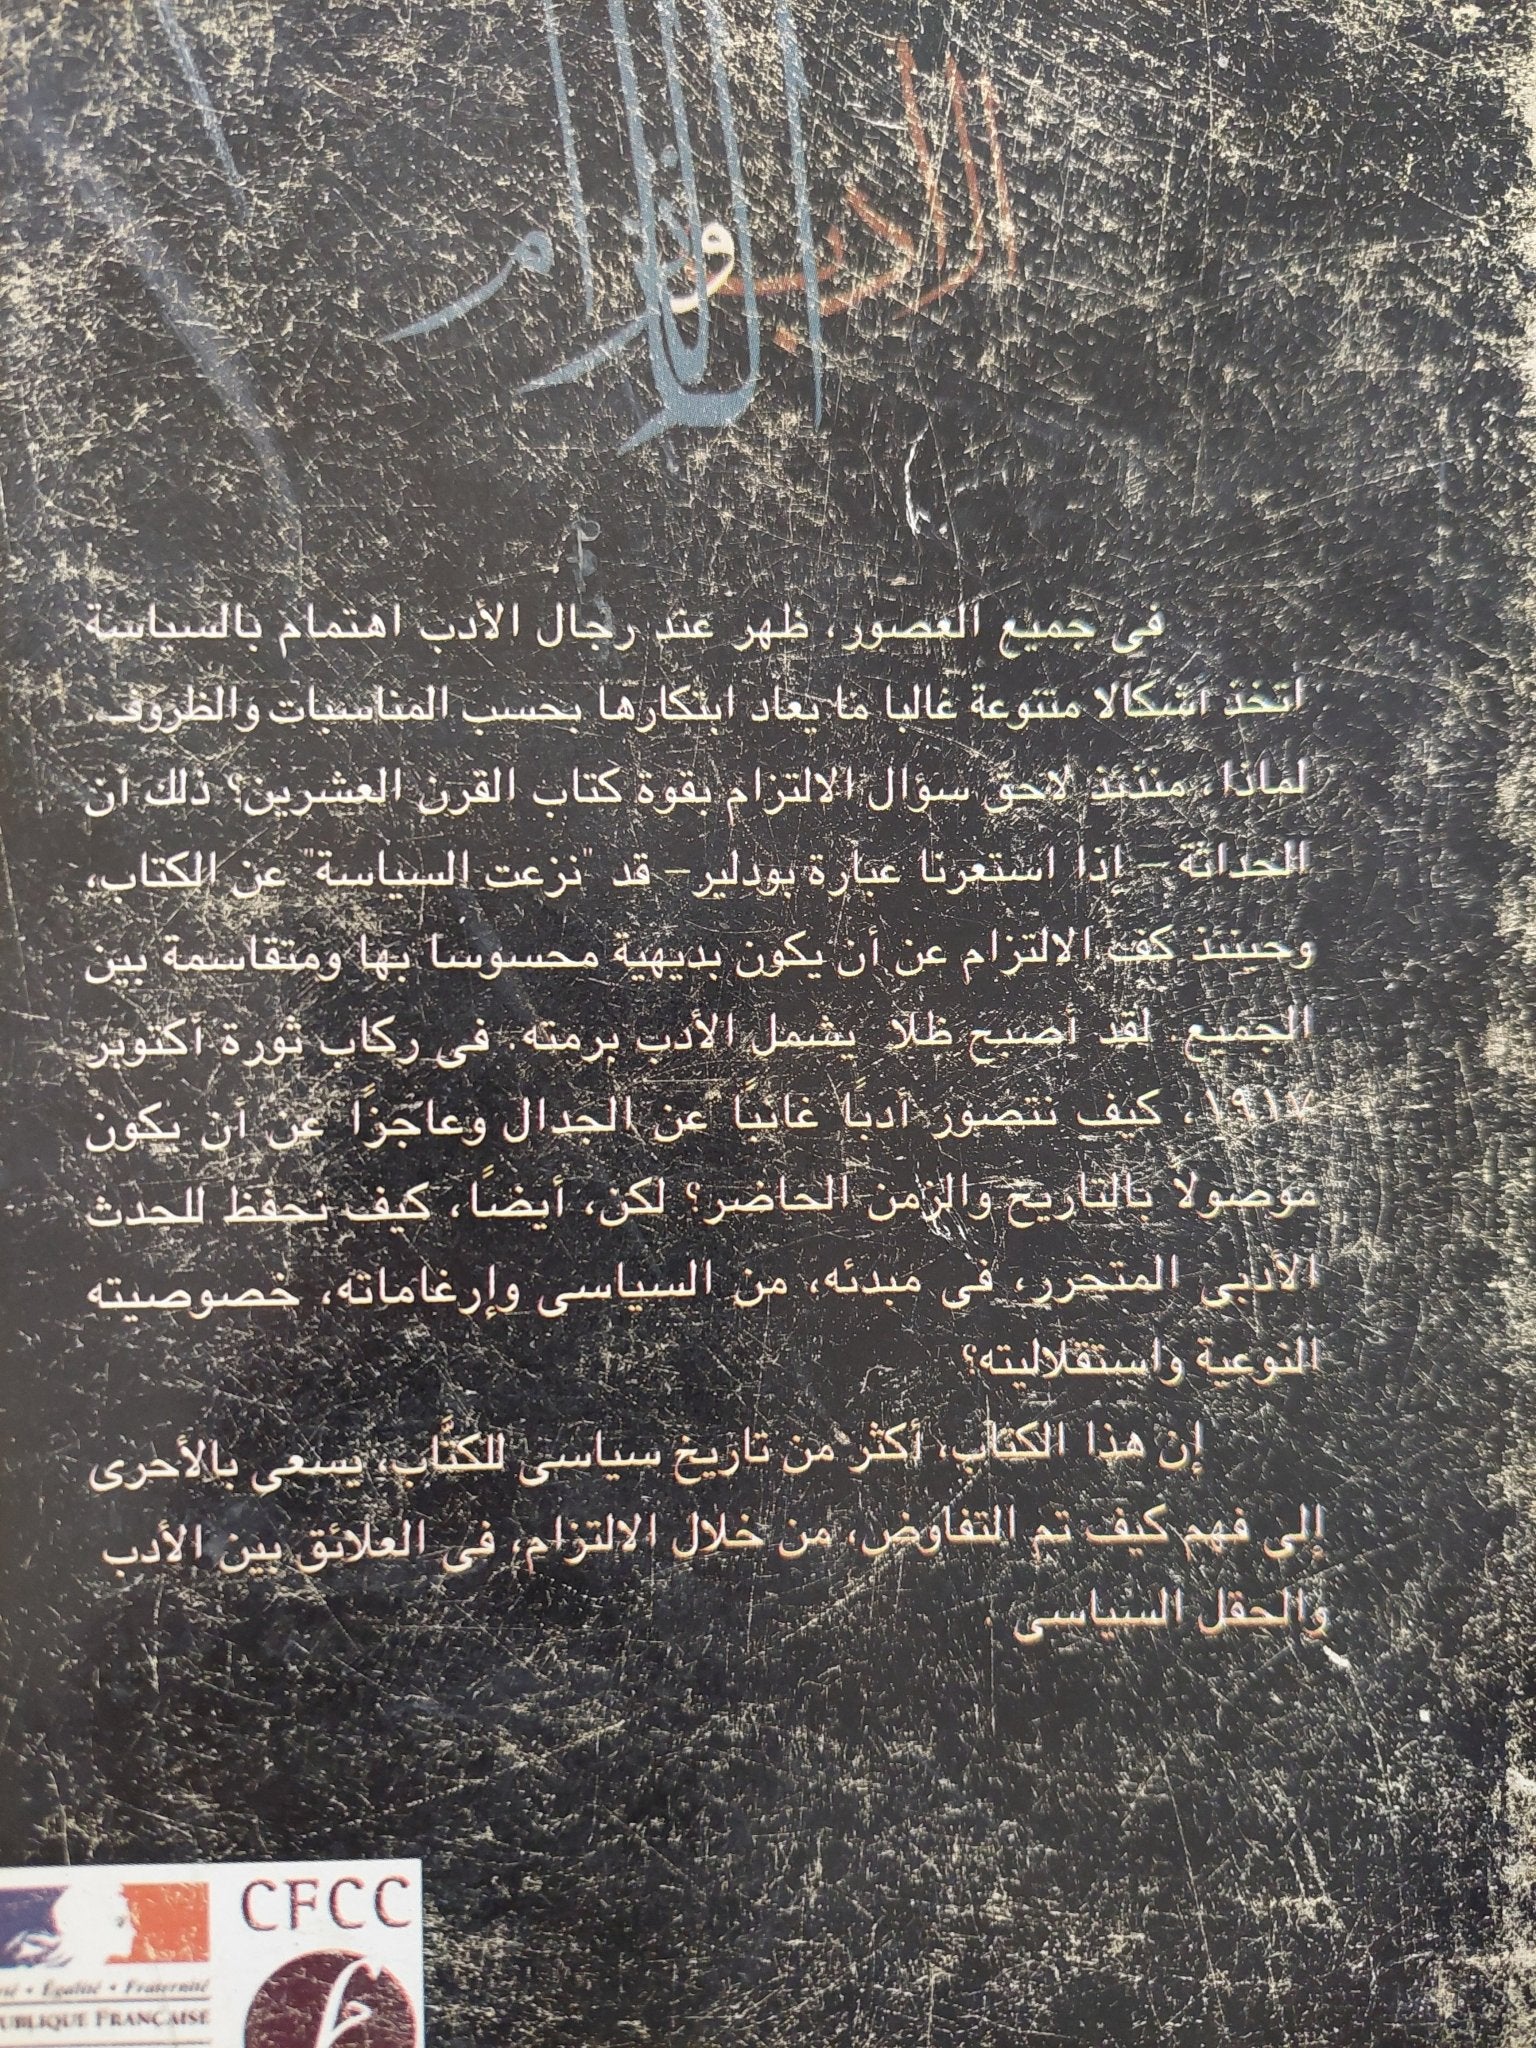 الأدب والالتزام
فى جميع العصور، ظهر عند رجال الأدب اهتمام بالسياسة
اتخذ أشكالا متنوعة غالبا ما يعاد ابتكارها بحسب المناسبات والظروف.
لماذا، منذئذ لاحق سؤال الالتزام بقوة كتاب القرن العشرين؟ ذلك أن
الحداثة - إذا استعرنا عبارة بودلير- قد "نزعت السياسة" عن الكتاب،
وحينئذ كف الالتزام عن أن يكون بديهية محسوسا بها ومتقاسمة بين
الجميع. لقد أصبح ظلا يشمل الأدب برمته. فى ركاب ثورة أكتوبر
١٩١٧، كيف نتصور أدبًا غائبًا عن الجدال وعاجزًا عن أن يكون
موصولا بالتاريخ والزمن الحاضر؟ لكن، أيضًا، كيف نحفظ للحدث
الأدبى المتحرر، فى مبدئه، من السياسى وإرغاماته، خصوصيته
النوعية واستقلاليته؟
إن هذا الكتاب، أكثر من تاريخ سياسى للكتَّاب، يسعى بالأحرى
إلى فهم كيف تم التفاوض، من خلال الالتزام، فى العلائق بين الأدب
والحقل السياسى.
CFCC
• Égalité • Fraternité
FRANÇAISE